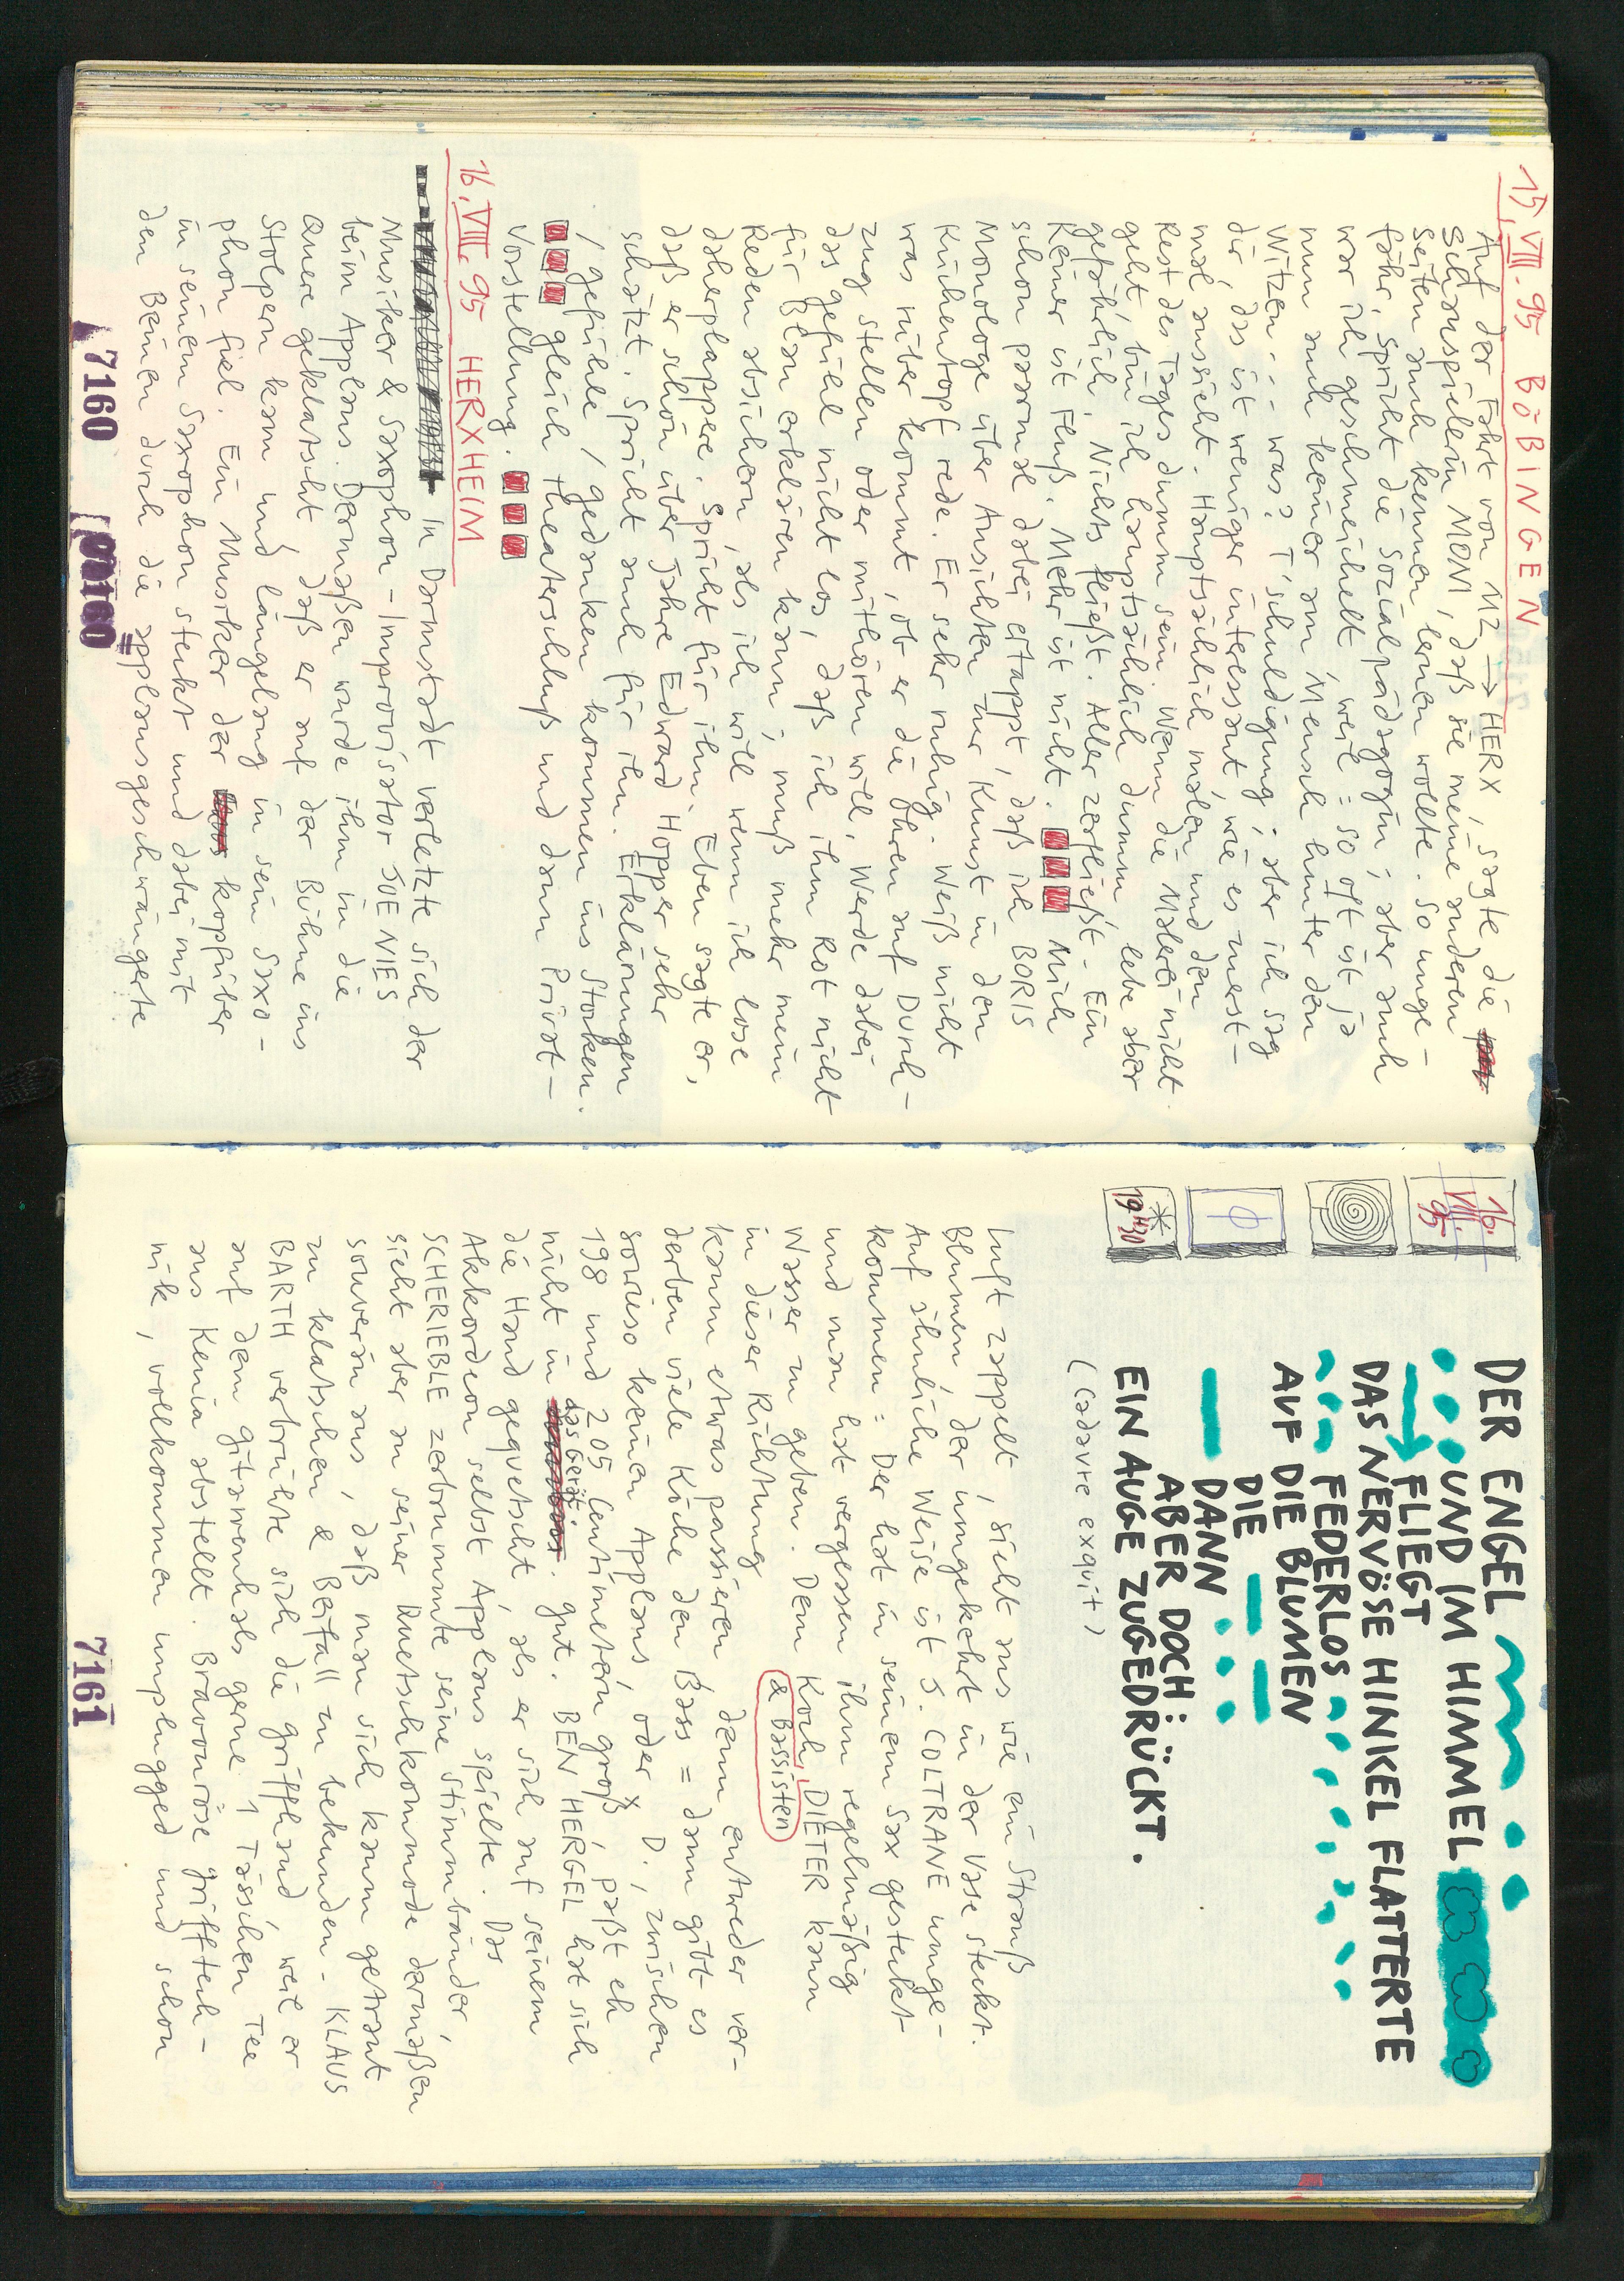 15.VIII.95 BÖBINGEN
Auf der Fahrt von MZ → HERX, sagte die
Schauspielerin MONI, daß sie meine anderen
Seiten auch kennen lernen wollte. So unge-
fähr, spricht die Sozialpädagogin; aber auch
war ich geschmeichelt, weil: so oft ist ja
nun auch keiner am Mensch hinter den
Witzen... was? T'schuldigung; aber ich sag
dir, das ist weniger interessant, wie es zuerst-
mal aussieht. Hauptsächlich malen und den
Rest des Tages dumm sein. Wenn die Malerei nicht
geht, bin ich hauptsächlich dumm, lebe aber
gefährlich. Nichts fließt. Aller zerfließt - Ein
Kleiner ist Fluß. Mehr ist nicht. Mich
schon paarmal dabei ertappt, daß ich BORIS
Monologe über Ansichten zur Kunst in den
Küchentopf rede. Er sehr ruhig. Weiß nicht
was rüber kommt, ob er die Ohren auf Durch-
zug stellen oder mithören will. Werde dabei
das Gefühl nicht los, daß ich ihm Rot nicht
für Blau erklären kann; muß mehr mein
Reden absichern, als ich will wenn ich lose
daherplappere. Spricht für ihn. Eben sagte er,
daß er schon über Jahre Edward Hopper sehr
schätzt. Spricht auch für ihn. Erklärungen
/ Gefühle / Gedanken kommen ins Stocken.
gleich Theaterschluß und dann Privat-
Vorstellung.
16.VIII.95 HERXHEIM
In Darmstadt verletzte sich der
Musiker & Saxophon-Improvisator JOE NIES
beim Applaus. Dermaßen wurde ihm in die
Quere geklatscht, daß er auf der Bühne ins
Stolpern kam und längelang in sein Saxo-
phon fiel. Ein Musiker der kopfüber
in seinem Saxophon steckt und dabei mit
den Beinen durch die applausgeschwängerte
7160
16.
VIII.
95
19 H 30
DER ENGEL
UND IM HIMMEL
FLIEGT
DAS NERVÖSE HINKEL FLATTERTE
FEDERLOS
AUF DIE BLUMEN
DIE
DANN
ABER DOCH:
EIN AUGE ZUGEDRÜCKT.
(cadavre exquit)
Luft zappelt, sieht aus wie ein Strauß
Blumen, der umgekehrt in der Vase steckt.
Auf ähnliche Weise ist J. COLTRANE umge-
kommen: Der hat in seinem Sax gesteckt
und man hat vergessen ihm regelmäßig
Wasser zu geben. Dem Koch, DIETER kann
& Bassisten
in dieser Richtung
kaum etwas passieren, denn entweder ver-
derben viele Köche den Bass = dann gibt es
sowieso keinen Applaus, oder D., zwischen
198 und 205 Centimetern groß, paßt eh
nicht in das Gerät. gut. BEN HERGEL hat sich
die Hand gequetscht, als er sich auf seinem
Akkordeon selbst Applaus spielte. Das
SCHERIEBLE zerbrummte seine Stimmbänder,
sieht aber an seiner Quetschkommode dermaßen
souverän aus, daß man sich kaum getraut
zu klatschen & Beifall zu bekunden - KLAUS
BARTH verbrühte sich die Griffhand, weil er
auf dem Gitarrenhals gerne 1 Tässchen Tee
aus Kenia abstellt. Bravouröse Grifftech-
nik, vollkommen unplugged und schon
7161